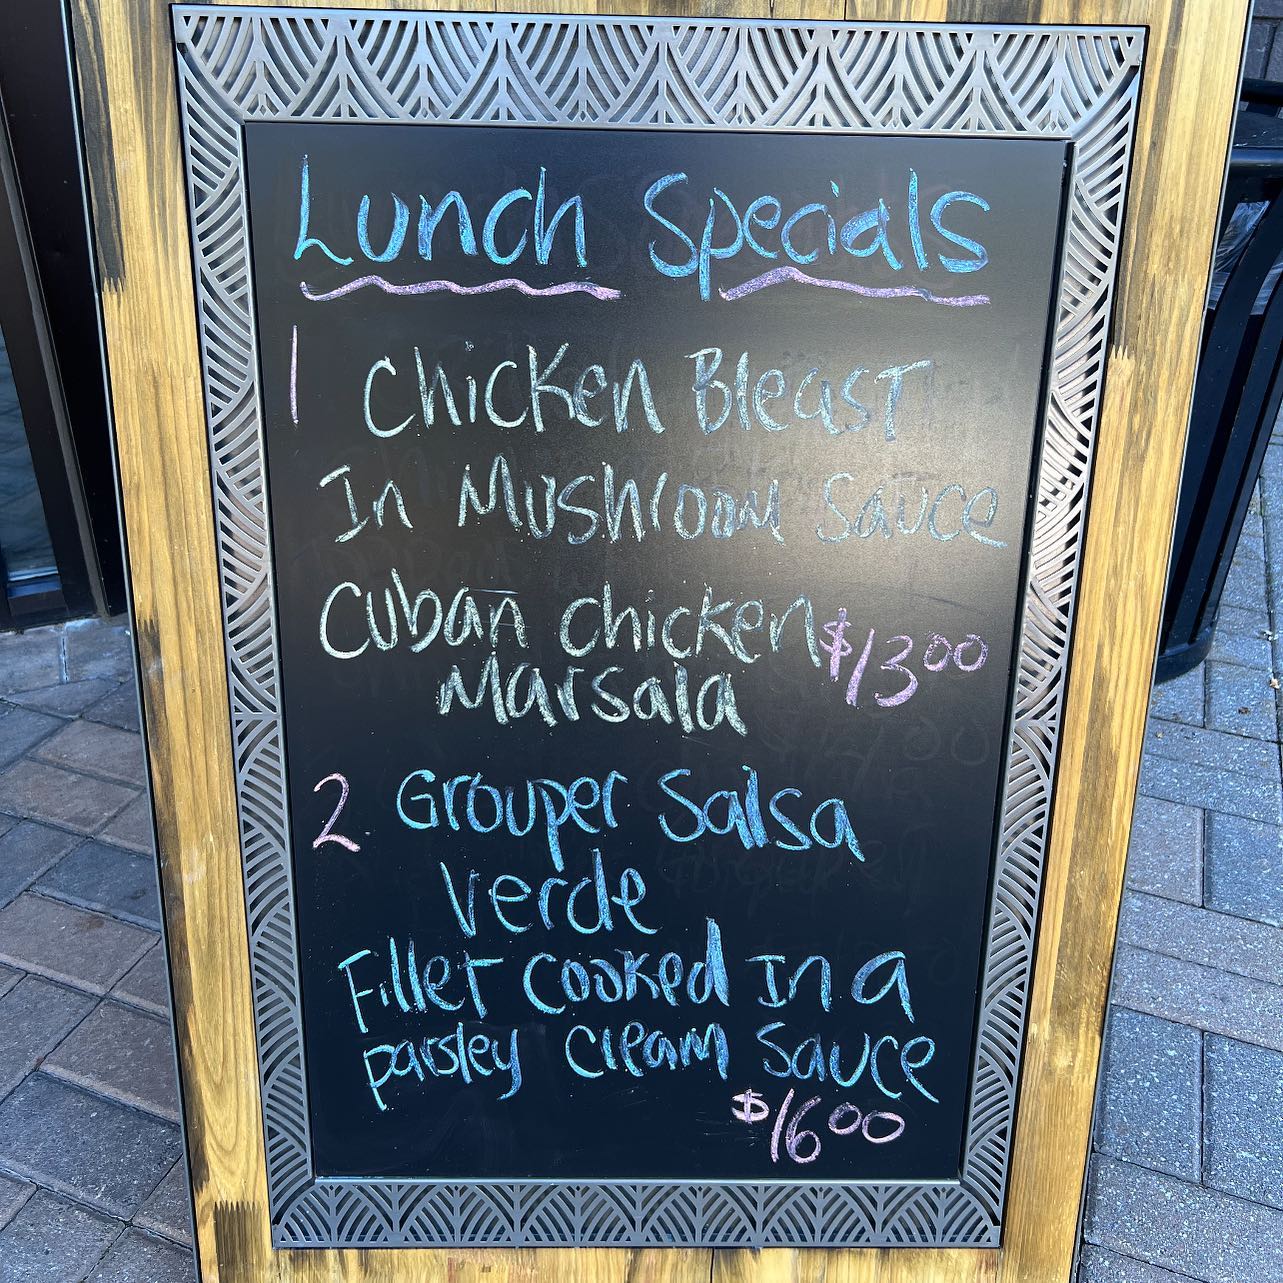 Lunch Specials
1 Chicken Breast
In Mushroom Sauce
Cuban Chicken $13.00
Marsala
2 Grouper Salsa
Verde
Fillet Cooked In a
parsley Cream Sauce
$16.00